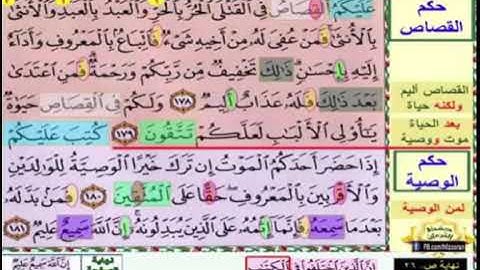 عَلَيْكُمُ الْقِصَاصُ فِي الْقَتْلَى الْحُرُّ بِالْحُرِّ وَالْعَبْدُ بِالْعَبْدِ وَالْأُنثَى
بِالْأُنثَى فَمَنْ عُفِيَ لَهُ مِنْ أَخِيهِ شَيْءٌ فَاتِّبَاعٌ بِالْمَعْرُوفِ وَأَدَاءٌ
إِلَيْهِ بِإِحْسَانٍ ذَٰلِكَ تَخْفِيفٌ مِّن رَّبِّكُمْ وَرَحْمَةٌ فَمَنِ اعْتَدَىٰ
بَعْدَ ذَٰلِكَ فَلَهُ عَذَابٌ أَلِيمٌ ١٧٨ وَلَكُمْ فِي الْقِصَاصِ حَيَوٰةٌ
يَا أُولِي الْأَلْبَابِ لَعَلَّكُمْ تَتَّقُونَ ١٧٩ كُتِبَ عَلَيْكُمْ
إِذَا حَضَرَ أَحَدَكُمُ الْمَوْتُ إِن تَرَكَ خَيْرًا الْوَصِيَّةُ لِلْوَالِدَيْنِ
وَالْأَقْرَبِينَ بِالْمَعْرُوفِ حَقًّا عَلَى الْمُتَّقِينَ ١٨٠ فَمَن بَدَّلَهُ
بَعْدَمَا سَمِعَهُ فَإِنَّمَا إِثْمُهُ عَلَى الَّذِينَ يُبَدِّلُونَهُ إِنَّ اللَّهَ سَمِيعٌ عَلِيمٌ ١٨١
حكم
القصاص
القصاص أليم
ولكنه حياة
بعد الحياة
موت ووصية
حكم
الوصية
لمن الوصية
FB.com/hfzquran
نهاية ص ٢٦
نهاية
إِنَّ اللَّهَ سَمِيعٌ عَلِيمٌ